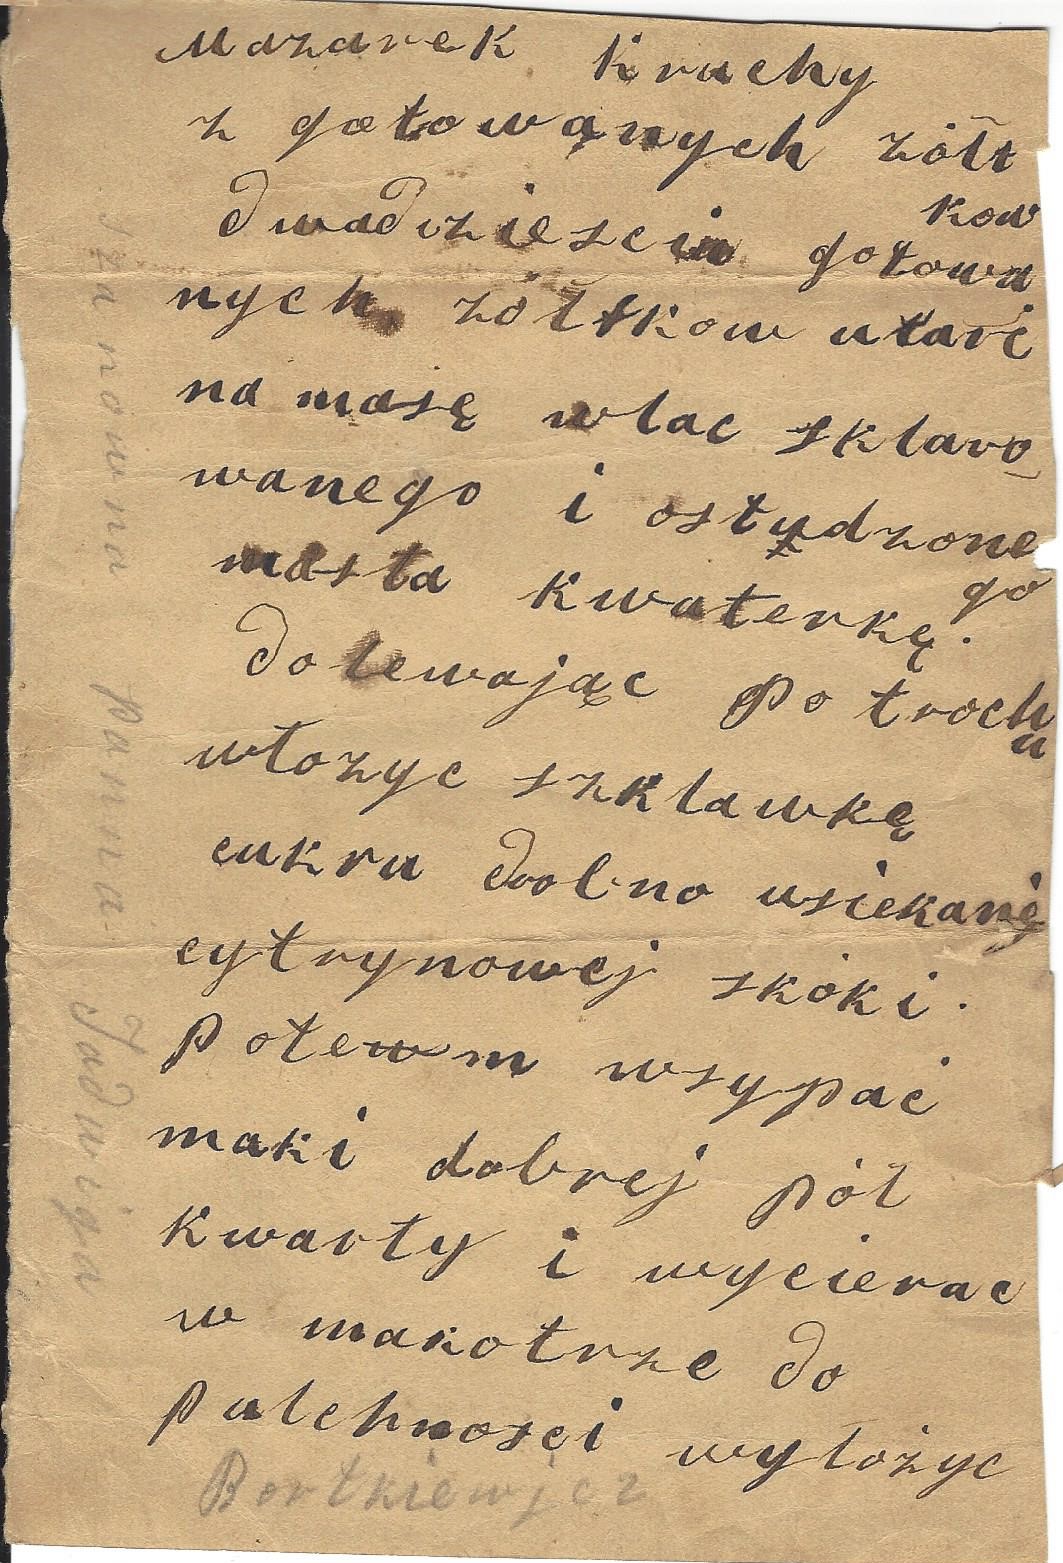 Mazarek kruchy
z gotowanych zółt
kow
dwadziescia gotowa
nych zółtkow utarć
na masę wlac sklaro
wanego i ostydzone
go
masta kwaterkę.
dolewając po troch
u
włozyc szklawkę
cukru drobno usiekanej
cytrynowej skoki.
Potem wsypać
maki dobrej pół
kwarty i wycierac
w makotrze do
pulchnosci wyłożyc
Bortkiewicz
Szanowna panna Jadwiga